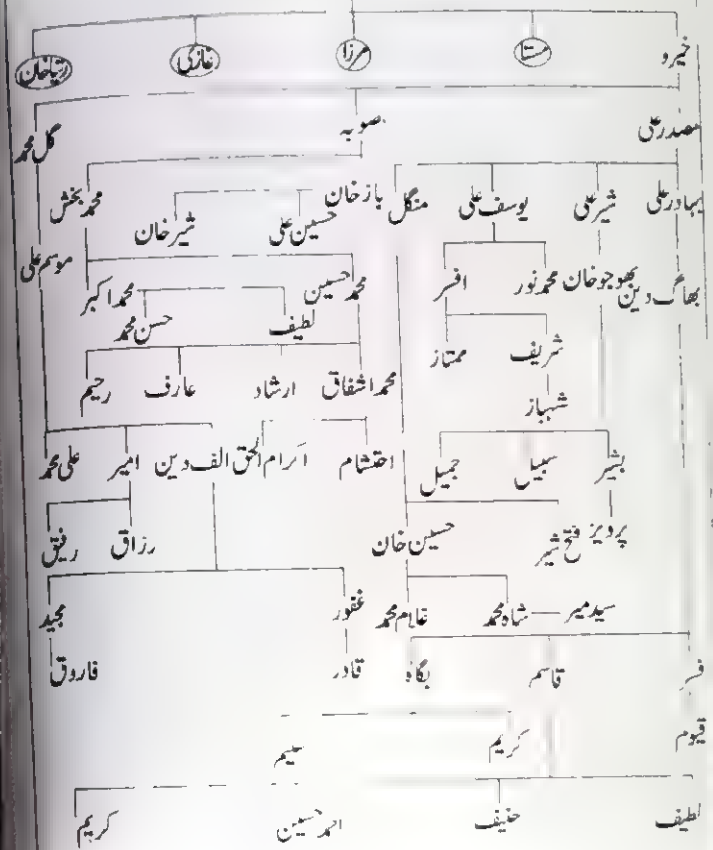 خیرو مستا مرزا غازی رتیاخان
صفدر علی صوبہ گل محمد
بہادر علی شیر علی یوسف علی منگل باز خان محمد بخش
حسین علی شیر خان
بھاگ دین بھوجو خان محمد نور افسر محمد حسین محمد اکبر موسم علی
لطیف حسن محمد
شریف ممتاز
محمد اشفاق ارشاد عارف رحیم
شہباز
بشیر سبیل جمیل احتشام اکرام الحق الف دین امیر علی محمد
پرویز فتح شیر حسین خان رزاق رفیق
سید میر شاہ محمد غلام محمد غفور مجید
قاسم بگاہ قادر فاروق
قیوم کریم
لطیف حنیف احمد حسین کریم